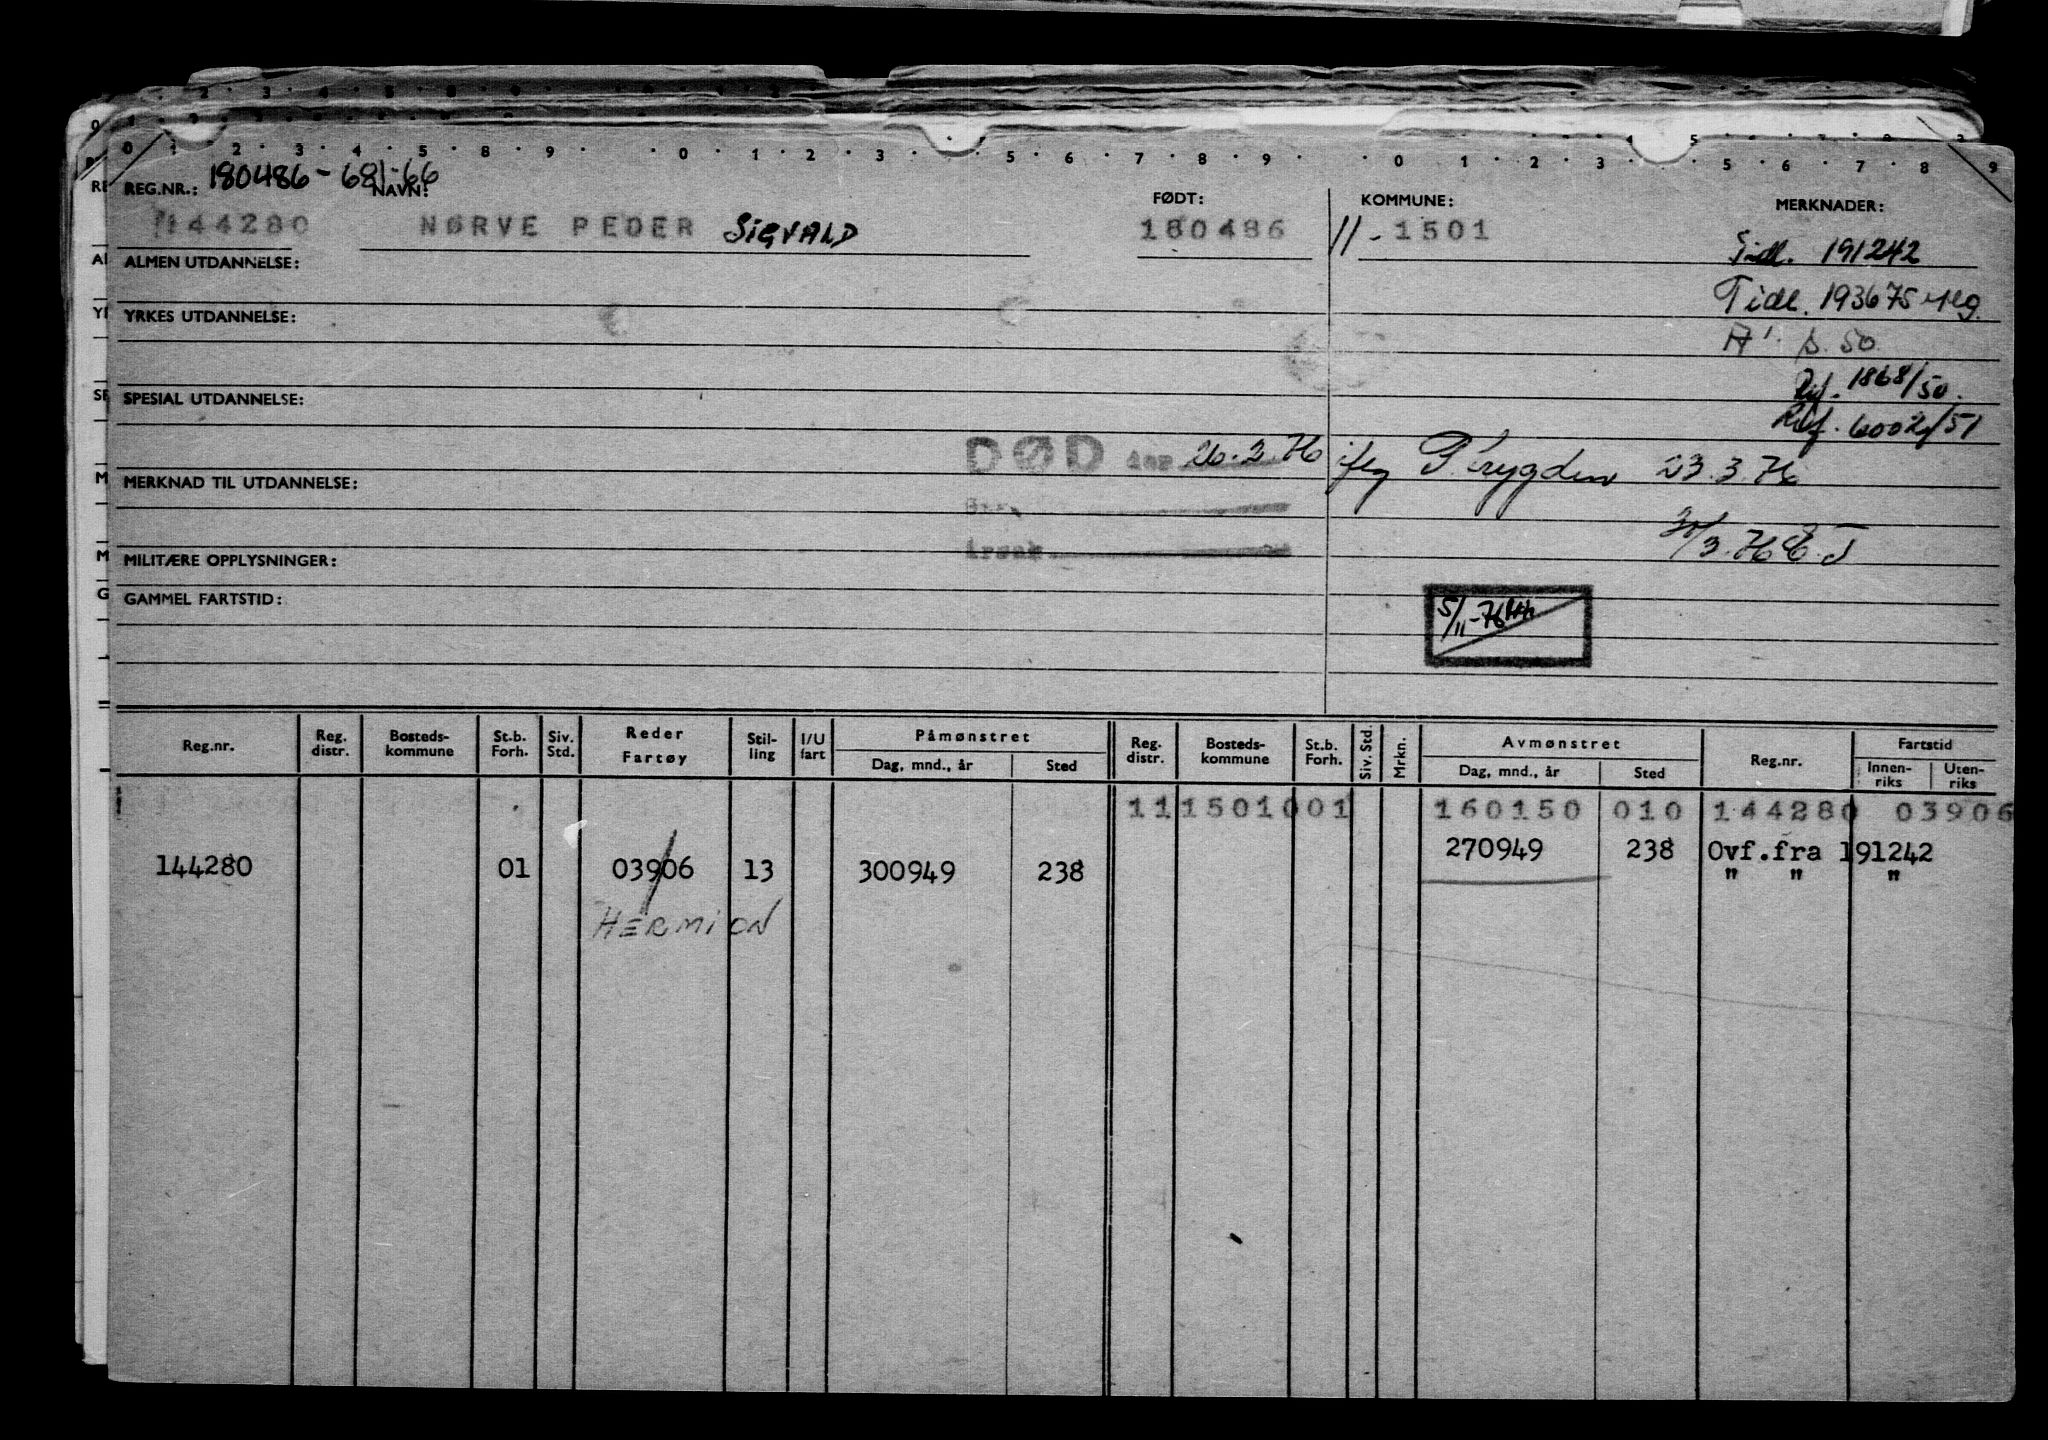 0 1 2 3 4 5 8 9 0 1 2 3 5 6 7 8 9 0 1 2 3 5 6 7 8 9
REG.NR.: 180486-681-66 NAVN: FØDT: KOMMUNE: MERKNADER:
144280 NØRVE PEDER SIGVALD 180486 11-1501
Tidl. 191242
ALMEN UTDANNELSE:
Tidl. 193675
YRKES UTDANNELSE:
s. 50
Ref. 1868/50.
SPESIAL UTDANNELSE:
Ref. 6002/51
DØD den 26.2.76 iflg P.trygden 23.3.76
MERKNAD TIL UTDANNELSE:
Årsak
MILITÆRE OPPLYSNINGER:
GAMMEL FARTSTID:
5/11-76
Reg.nr. Reg. distr. Bosteds- kommune St.b. Forh. Siv. Std. Reder Fartøy Stil- ling I/U fart Påmønstret Dag, mnd., år Sted Reg. distr. Bosteds- kommune St.b. Forh. Siv. Std. Mrkn. Avmønstret Dag, mnd., år Sted Reg.nr. Fartstid Innen- riks Uten- riks
11 1501 001 160150 010 144280 03906
270949 238 Ovf.fra 191242
144280 01 03906 13 300949 238 " " "
HERMION